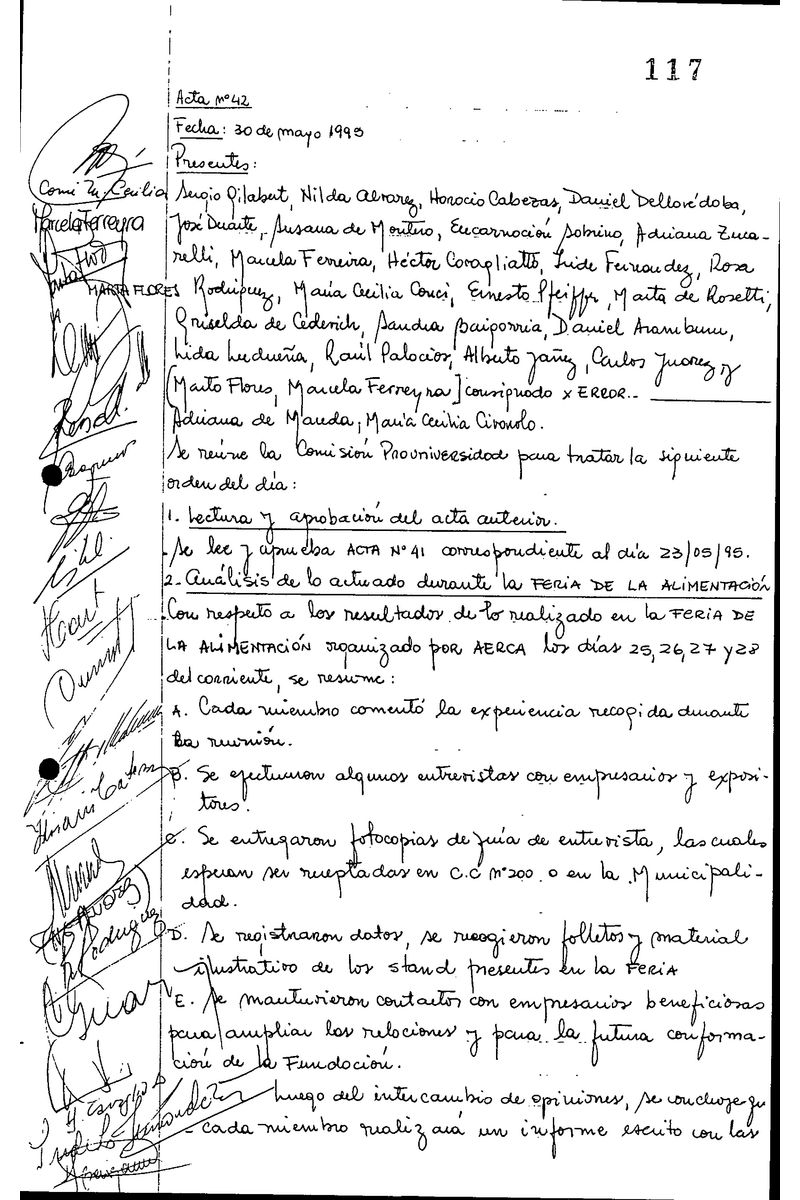 117
Acta nº 42
Fecha: 30 de mayo 1995
Presentes:
Sergio Gilabert, Nilda Alvarez, Horacio Cabezas, Daniel Dellorédoba,
José Duarte, Susana de Montero, Encarnación Sobrino, Adriana Zuca-
relli, Marcela Ferreira, Héctor Coragliatto, Iride Fernandez, Rosa
Rodriguez, Maria Cecilia Conci, Ernesto Pfeiffer, Marta de Rosetti,
Griselda de Cederich, Sandra Baigorria, Daniel Aramburu,
Lida Ludueña, Raúl Palacios, Alberto Jañez, Carlos Juarez y
[Marta Flores, Marcela Ferreyra] consignado x ERROR.-
Adriana de Maeda, María Cecilia Civorolo.
Se reúne la Comisión Prouniversidad para tratar la siguiente
orden del día:
1. Lectura y aprobación del acta anterior.
Se lee y aprueba ACTA Nº 41 correspondiente al día 23/05/95.
2. Análisis de lo actuado durante la FERIA DE LA ALIMENTACIÓN
Con respecto a los resultados de lo realizado en la FERIA DE
LA ALIMENTACIÓN organizado por AERCA los días 25, 26, 27 y 28
del corriente, se resume:
A. Cada miembro comentó la experiencia recogida durante
la reunión.
B. Se efectuaron algunas entrevistas con empresarios y exposi-
tores.
C. Se entregaron fotocopias de guía de entrevista, las cuales
esperan ser receptadas en C.C nº 200 o en la Municipali-
dad.
D. Se registraron datos, se recogieron folletos y material
ilustrativo de los stand presentes en la FERIA
E. Se mantuvieron contactos con empresarios beneficiosas
para ampliar las relaciones y para la futura conforma-
ción de la Fundación.
Luego del intercambio de opiniones, se concluye qu
- cada miembro realizará un informe escrito con las
Marcela Ferreyra
MARTA FLORES